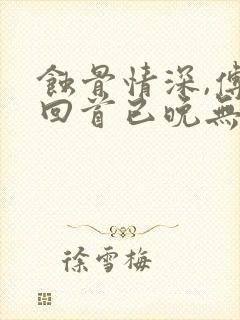 蝕骨情深,傅
回首已晚無
徐雪梅